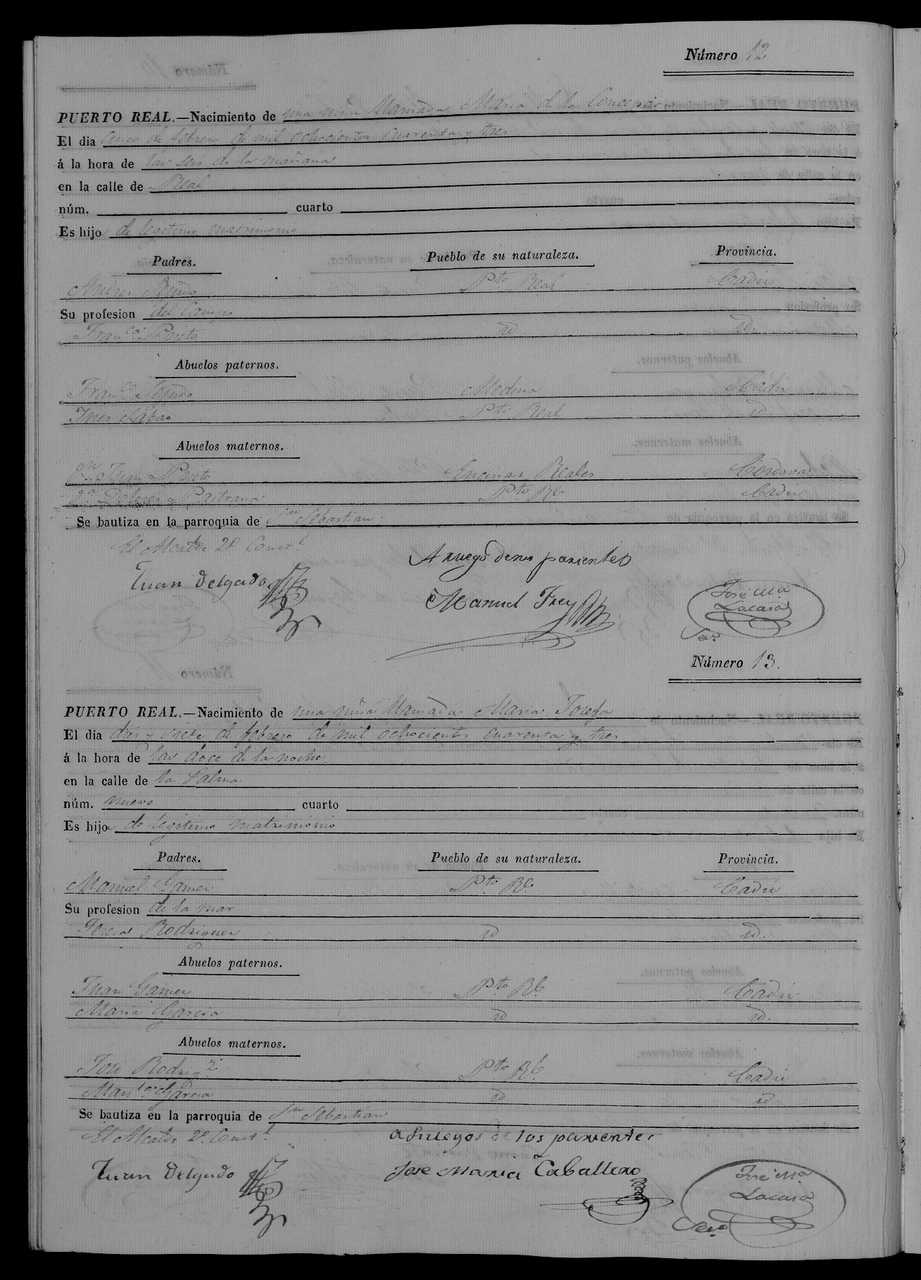 Número 12
PUERTO REAL.—Nacimiento de una niña llamada Maria de la Concepn
El dia cinco de febrero de mil ochocientos cuarenta y tres
á la hora de las seis de la mañana
en la calle de Real
núm. cuarto
Es hijo de legitimo matrimonio
Padres. Pueblo de su naturaleza. Provincia.
Andres Pto Real Cadiz
Su profesion del Campo
Franca Prieto id id
Abuelos paternos.
Franco Medina Cadiz
Ines Pto Real id
Abuelos maternos.
Dn Juan Prieto Encinas Reales Cordova
Da Dolores Pastrana Pto Rl Cadiz
Se bautiza en la parroquia de San Sebastian
El Alcalde 2º Constl
A ruego de sus parientes
Juan Delgado
Manuel Frey
José Ma
Lacasa
Número 13.
PUERTO REAL.—Nacimiento de una niña llamada Maria Josefa
El dia diez y siete de febrero de mil ochocientos cuarenta y tres
á la hora de las doce de la noche
en la calle de la Palma
núm. nueve cuarto
Es hijo de legitimo matrimonio
Padres. Pueblo de su naturaleza. Provincia.
Manuel Gamer Pto Rl Cadiz
Su profesion de la mar
Josefa Rodriguez id id.
Abuelos paternos.
Juan Gamer Pto Rl Cadiz
Maria Garcia id id.
Abuelos maternos.
Jose Rodrigz Pto Rl Cadiz
Garcia id id
Se bautiza en la parroquia de Sn Sebastian
El Alcalde 2º Constl
a Ruegos de los parientes
Juan Delgado
Jose Maria Caballero
José Ma
Lacasa
Srio